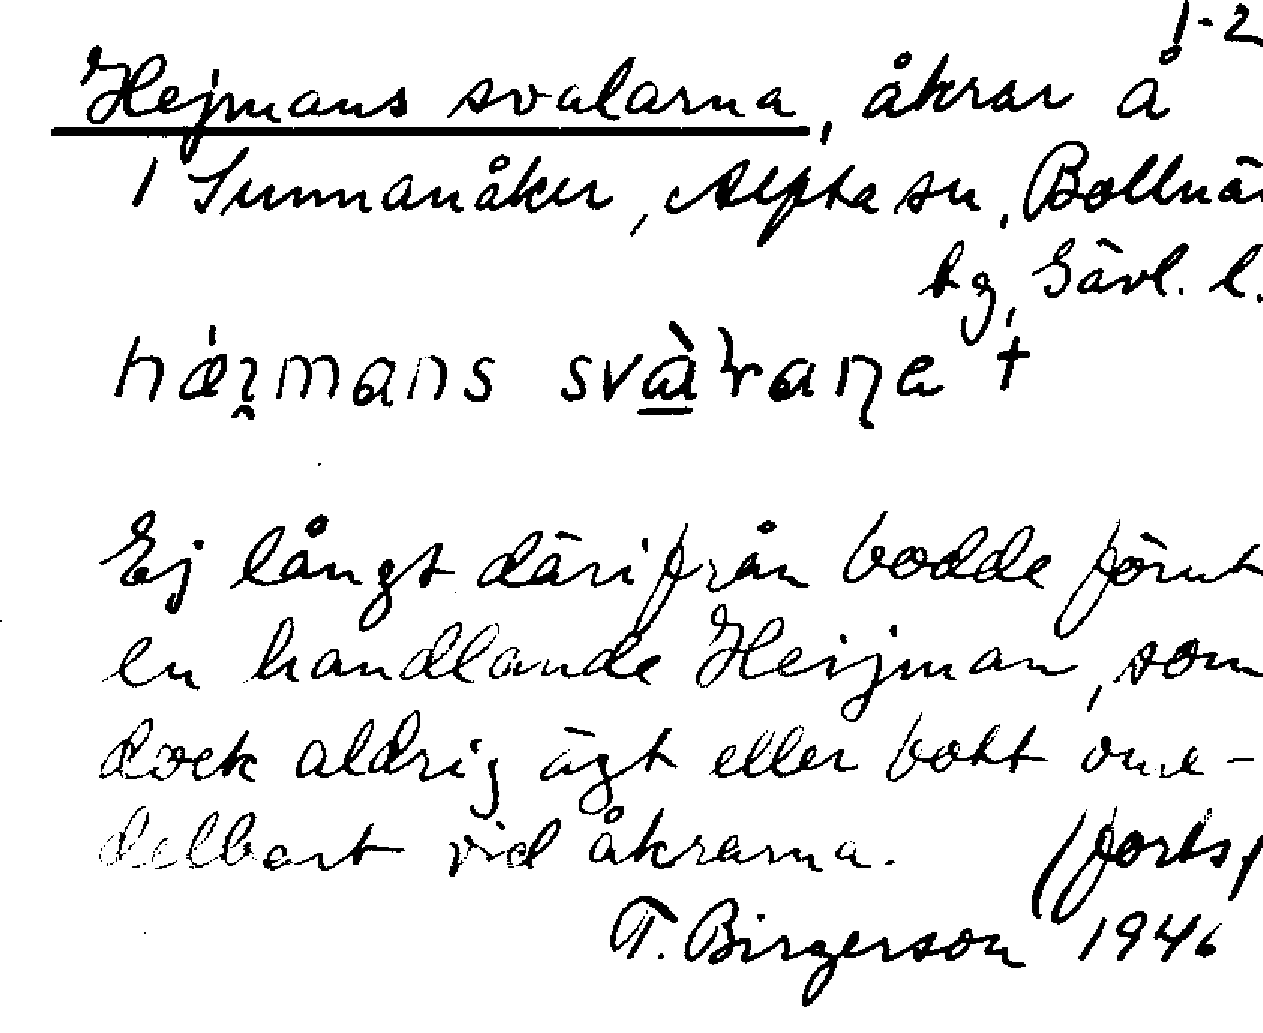 1-2
Hejmans svalarna, åkrar å
1 Sunnanåker, Alfta sn, Bollnäs
tg, Gävl. l.
svàrane †
Ej långt därifrån bodde förut
en handlande Heijman, som
dock aldrig ägt eller bott ome-
delbart vid åkrarna. (forts)
T. Birgerson 1946